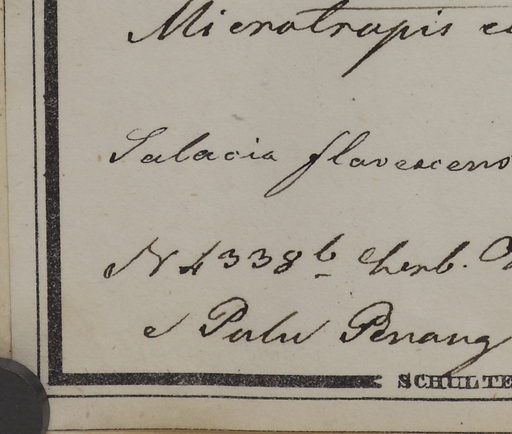 Microtropis
Salacia flavescens
N 4338 b herb.
e Pulu Penang
SCHULTE